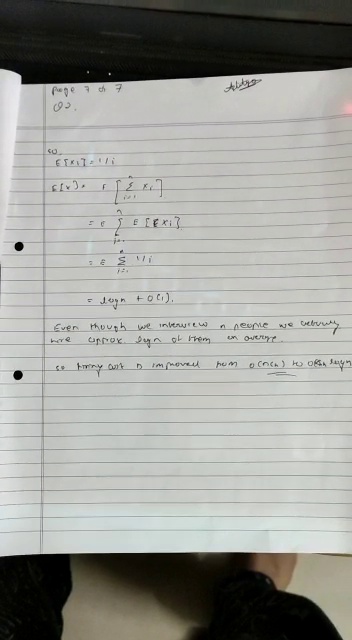 Page 7 of 7
Q2.
so,
E[xi] = 1/i
E[x] = E [ n Σ i=1 xi ]
= E n Σ i=1 E[xi]
= E n Σ i=1 1/i
= logn + O(1).
Even though we interview n people we actually
hire approx. logn of them on average.
so hiring cost is improved from O(nch) to O(ch logn